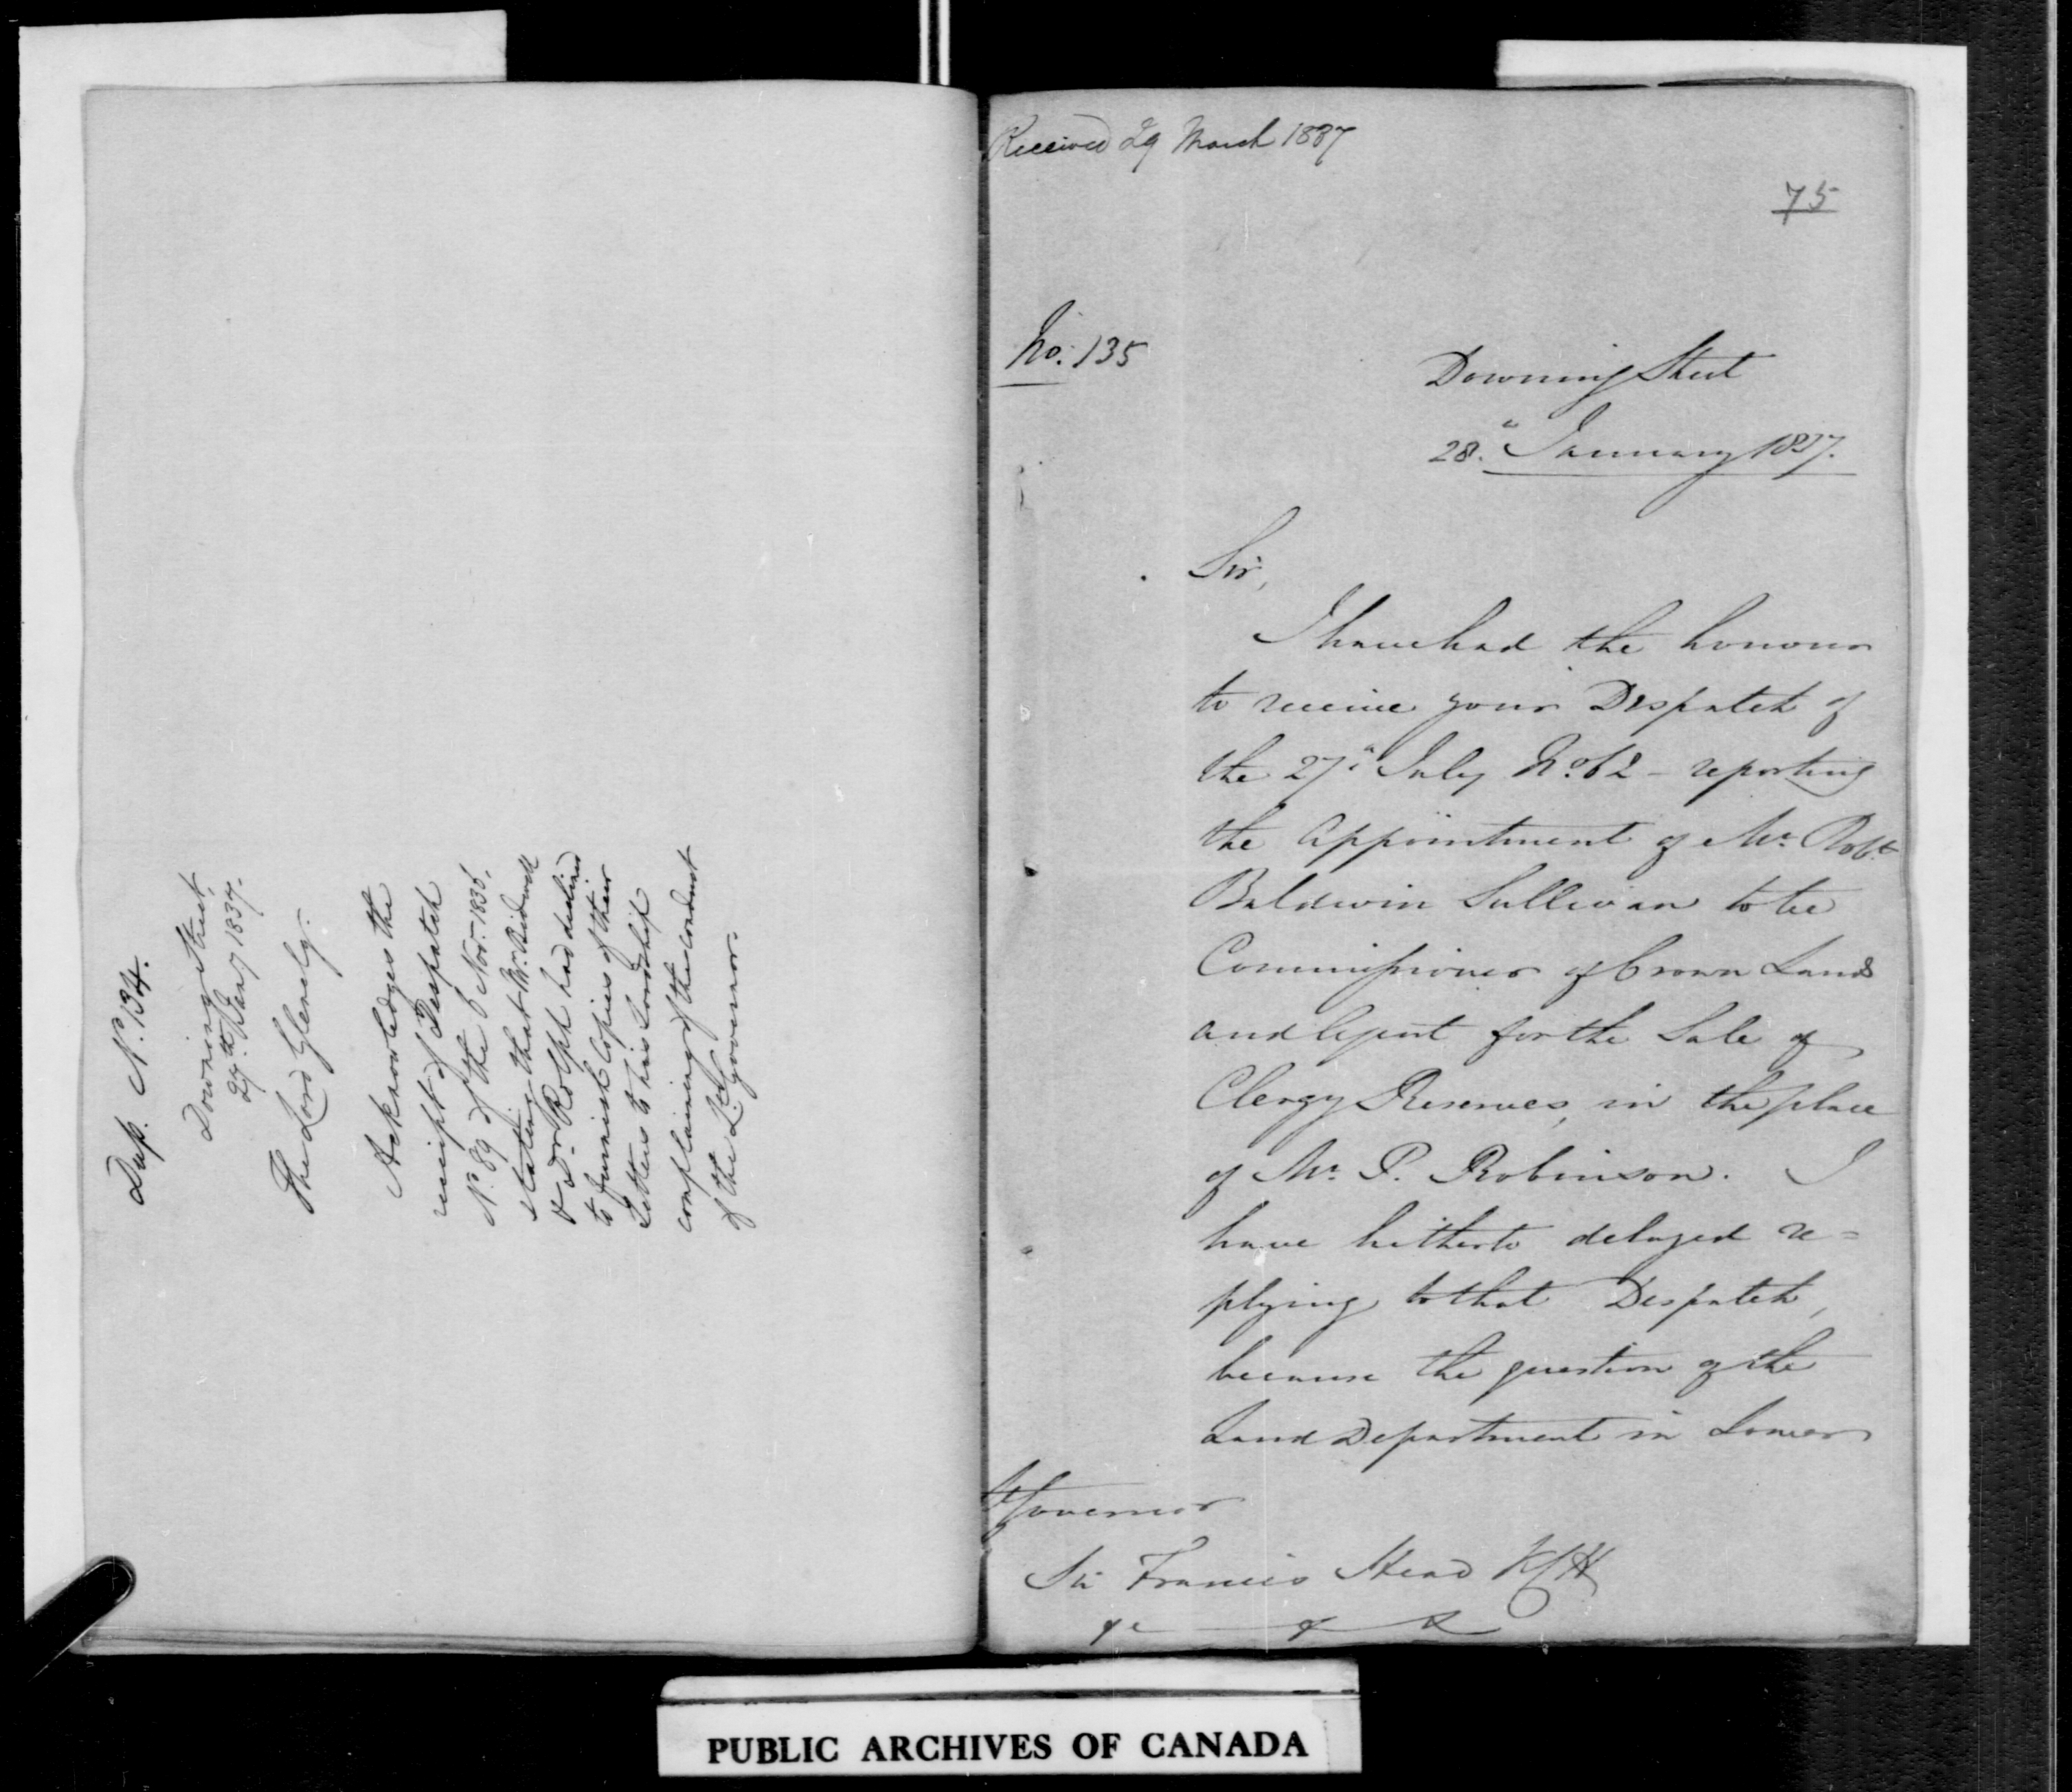 Dup. No. 134.
Downing Street,
27th Jany 1837.
The Lord Glenelg.
Acknowledges the
receipt of Despatch
No. 89 of the 6 Nov. 1836,
stating that Mr. Bidwell
& Dr. Rolph had declined
to furnish Copies of their
Letters to his Lordship
complaining of the conduct
of the Lt. Governor.
Received 29 March 1837
75
No. 135
Downing Street
28th January 1837.
Sir,
I have had the honour
to receive your Despatch of
the 27th July No. 62 - reporting
the appointment of Mr. Robt.
Baldwin Sullivan to be
Commissioner of Crown Lands
and Agent for the Sale of
Clergy Reserves, in the place
of Mr. P. Robinson. I
have hitherto delayed re=
plying to that Despatch,
because the question of the
Land Department in Lower
Lt Governor
Sir Francis Head KCH
&c &c &c
PUBLIC ARCHIVES OF CANADA